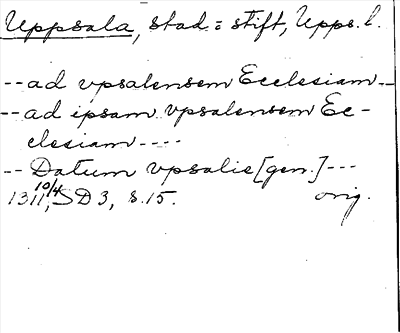 Uppsala, stad = stift, Upps. l.
-- ad vpsalensem Ecclesiam --
-- ad ipsam vpsalensem Ec-
clesiam ----
-- Datum vpsalie [gen.] ---
1311 10/4, SD 3, s. 15. orig.